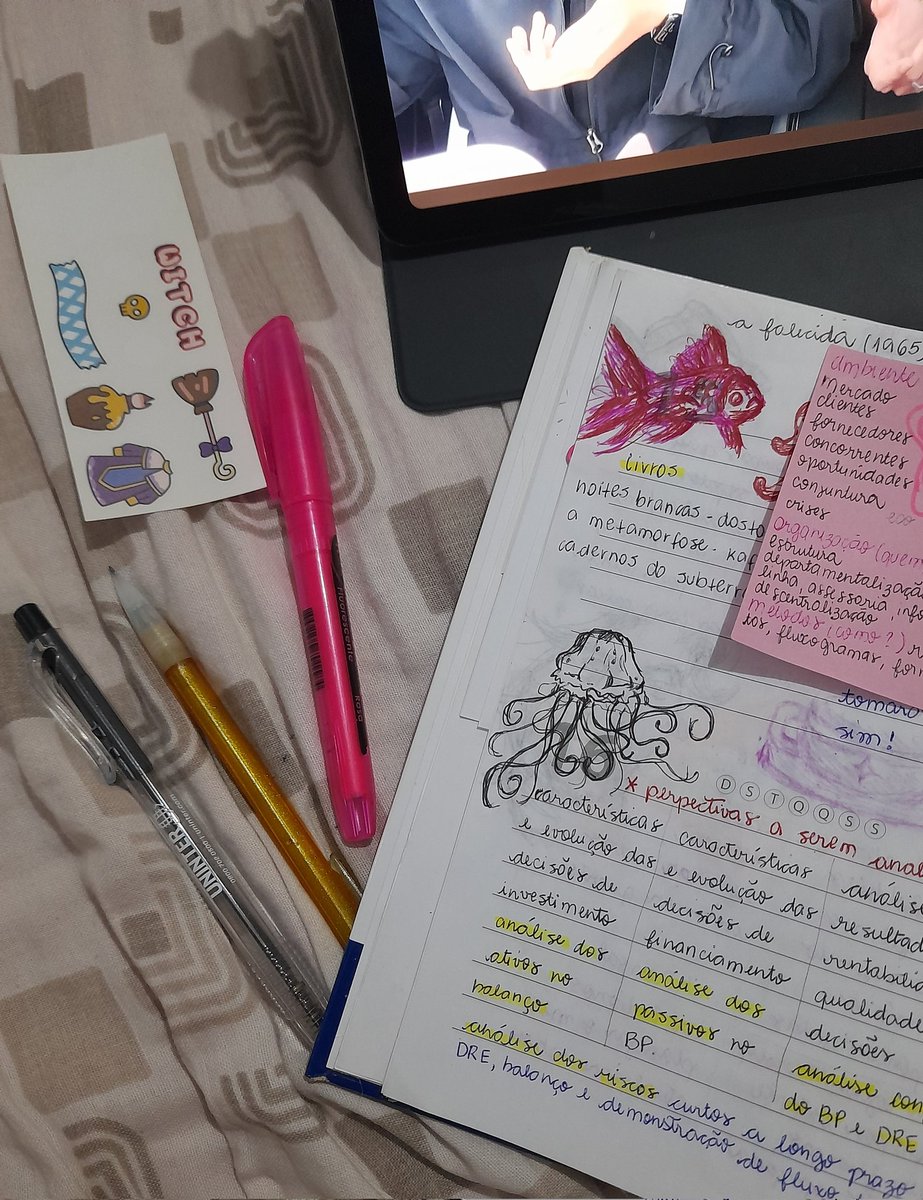 WITCH
Fluorescente
ROSA
UNINTER
0800 702 0500 | uninter.com
a falecida (1965)
livros
noites brancas - dosto
a metamorfose - kaf
cadernos do subterr
ambiente
mercado
clientes
fornecedores
concorrentes
oportunidades
conjuntura
crises
organização (quem
estrutura
departamentalização
linha, assessoria, info
descentralização
métodos (como?)
fluxogramas, for
tomara
sim!
D S T Q Q S S
* perpectivas a serem anal
características
e evolução das
decisões de
investimento
análise dos
ativos no
balanço
características
e evolução das
decisões de
financiamento
análise dos
passivos no
BP.
análise
resultad
rentabili
qualidade
decisões
análise con
do BP e DRE
análise dos riscos curtos a longo prazo
DRE, balanço e demonstração de fluxo